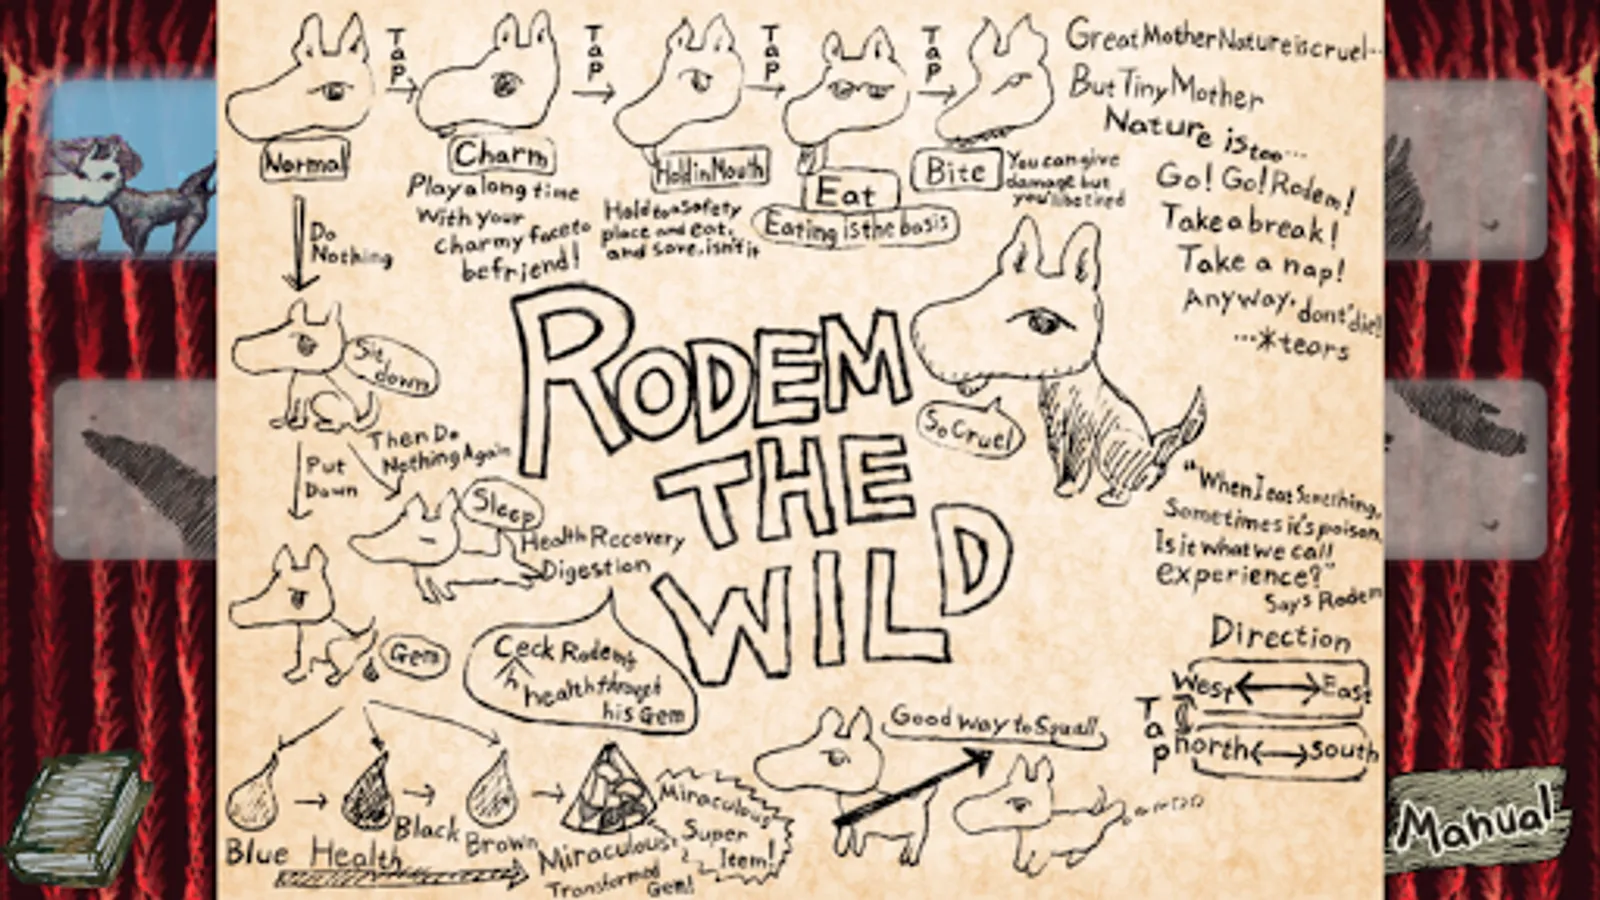 Tap
Tap
Tap
Tap
Normal
Charm
Play along time
With your
charmy face to
befriend!
Hold in Mouth
Hold to a Safety
place and eat.
and save, isn't it
Eat
Eating is the basis
Bite
You can give
damage but
you'll be tired
Great Mother Nature is cruel...
But Tiny Mother
Nature is too...
Go! Go! Rodem!
Take a break!
Take a nap!
Anyway, dont' die!!
...*tears
Do
Nothing
Sit
down
Then Do
Nothing Again
Put
Down
Sleep
Health Recovery
Digestion
RODEM
THE
WILD
So Cruel
"When I eat Something,
Sometimes it's poison.
Is it what we call
experience?"
Say's Rodem
Gem
Ceck Rodem's
h
health through
his Gem
Blue
Black
Brown
Health
Miraculous
Transformed
Gem!
Miraculous
Super
Item!
Good way to Squall
Direction
West
East
Tap
north
South
Manual